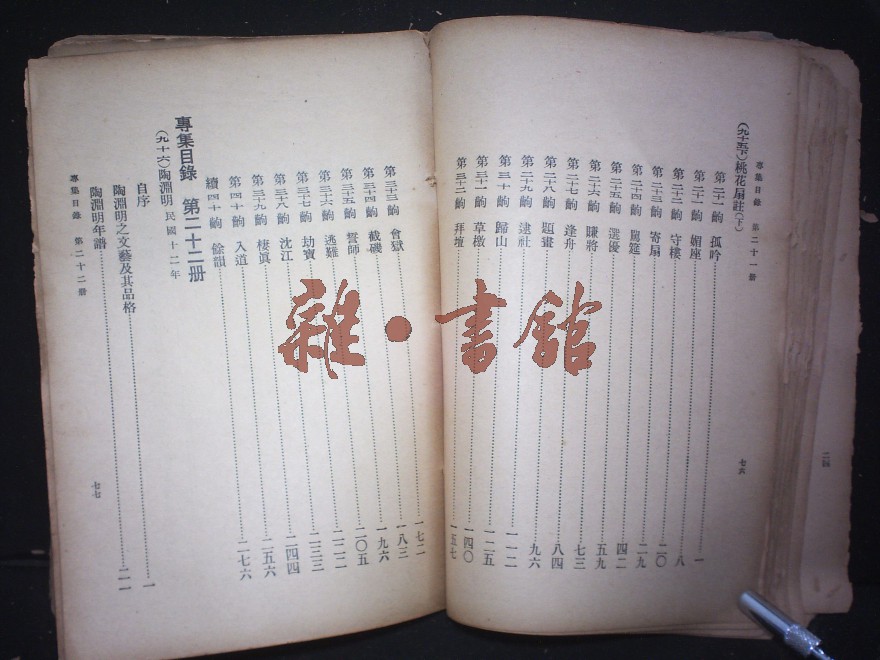 專集目錄 第二十一册
七六
(九十五下)桃花扇註(下)
第二十一齣 孤吟……一
第二十一齣 媚座……八
第二十二齣 守樓……二〇
第二十三齣 寄扇……二九
第二十四齣 罵筵……四二
第二十五齣 選優……五九
第二十六齣 賺將……七三
第二十七齣 逢舟……八四
第二十八齣 題畫……九六
第二十九齣 逮社……一一二
第三十齣 歸山……一二五
第三十一齣 草檄……一四〇
第三十二齣 拜壇……一五七
第三十三齣 會獄……一七二
第三十四齣 截磯……一八三
第三十五齣 誓師……一九六
第三十六齣 逃難……二〇五
第三十七齣 劫寶……二二二
第三十八齣 沈江……二三三
第三十九齣 棲眞……二四四
第四十齣 入道……二五六
續四十齣 餘韻……二七六
專集目錄 第二十二册
(九十六)陶淵明 民國十二年
自序……一
陶淵明之文藝及其品格
陶淵明年譜……二一
專集目錄 第二十二册
七七
雜·書館